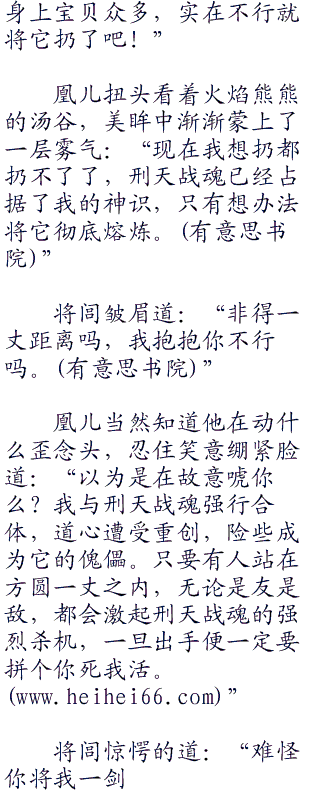 身上宝贝众多，实在不行就
将它扔了吧！”
凰儿扭头看着火焰熊熊
的汤谷，美眸中渐渐蒙上了
一层雾气：“现在我想扔都
扔不了了，刑天战魂已经占
据了我的神识，只有想办法
将它彻底熔炼。(有意思书
院)”
将闾皱眉道：“非得一
丈距离吗，我抱抱你不行
吗。(有意思书院)”
凰儿当然知道他在动什
么歪念头，忍住笑意绷紧脸
道：“以为是在故意唬你
么？我与刑天战魂强行合
体，道心遭受重创，险些成
为它的傀儡。只要有人站在
方圆一丈之内，无论是友是
敌，都会激起刑天战魂的强
烈杀机，一旦出手便一定要
拼个你死我活。
(www.heihei66.com)”
将闾惊愕的道：“难怪
你将我一剑